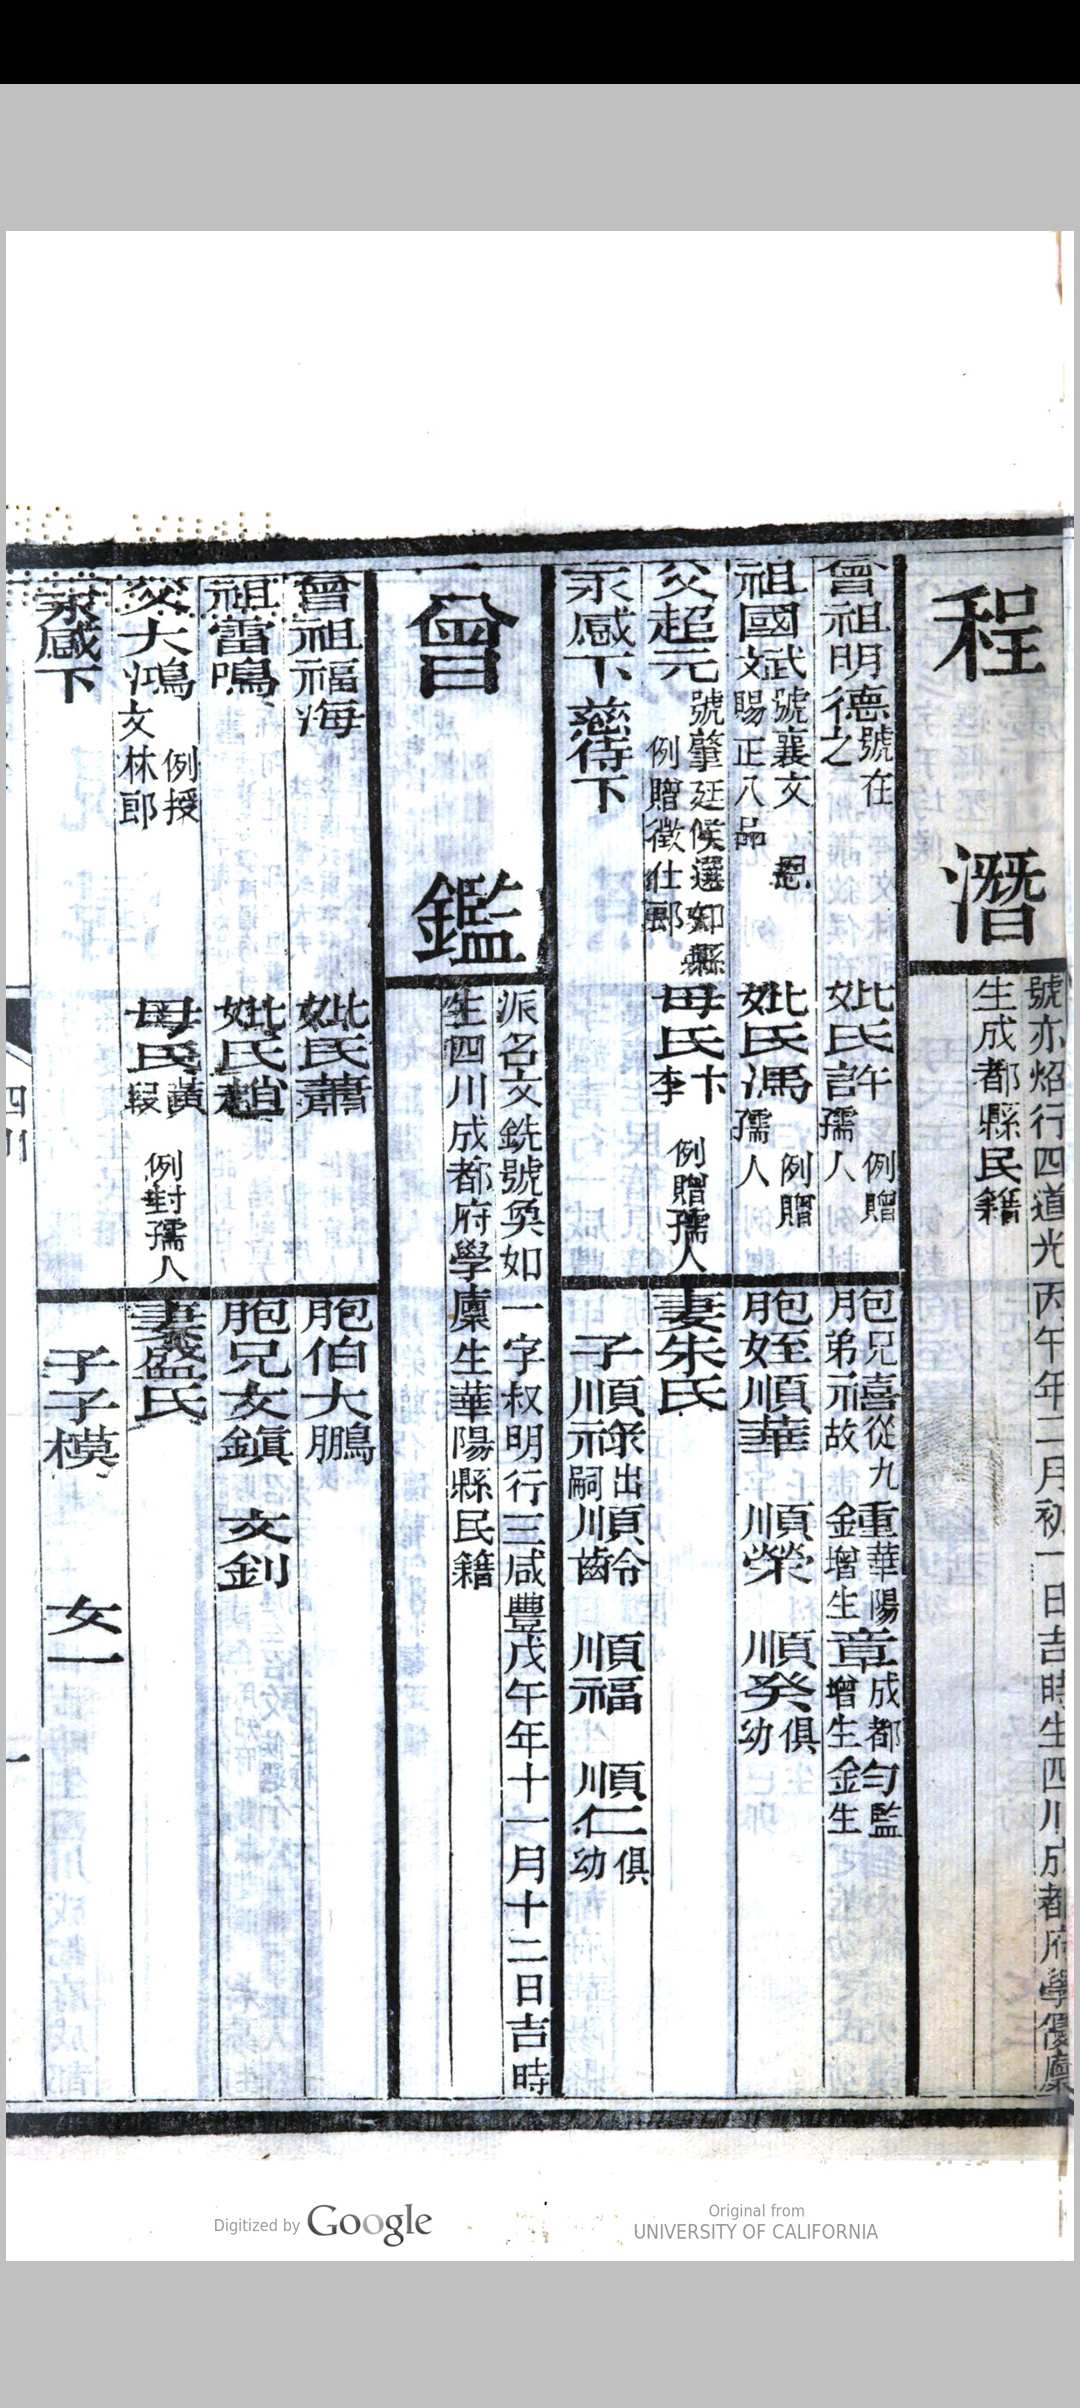 程潛
號亦炤行四道光丙午年二月初一日吉時生四川成都府學優廩
生成都縣民籍
曾祖明德號在之
妣氏許例贈孺人
胞兄喜從九 重華陽增生 章成都增生 勻監生
胞弟元故 金 金
祖國斌號襄文 恩賜正八品
妣氏馮例贈孺人
胞姪順華 順榮 順癸俱幼
父超元號肇廷候選知縣例贈徵仕郎
母氏卞李例贈孺人
妻朱氏
永感下 慈侍下
子順祿出嗣 順元 順齡 順福 順仁俱幼
曾鑑
派名文銑號奐如一字叔明行三咸豐戊午年十一月十二日吉時
生四川成都府學廩生華陽縣民籍
曾祖福海
妣氏蕭
胞伯大鵬
祖雷鳴
妣氏趙
胞兄友鎮 文釗
父大鴻例授文林郎
母氏黃 例封孺人
妻氏
永感下
子子模 女一
四川
一
Digitized by Google
Original from
UNIVERSITY OF CALIFORNIA